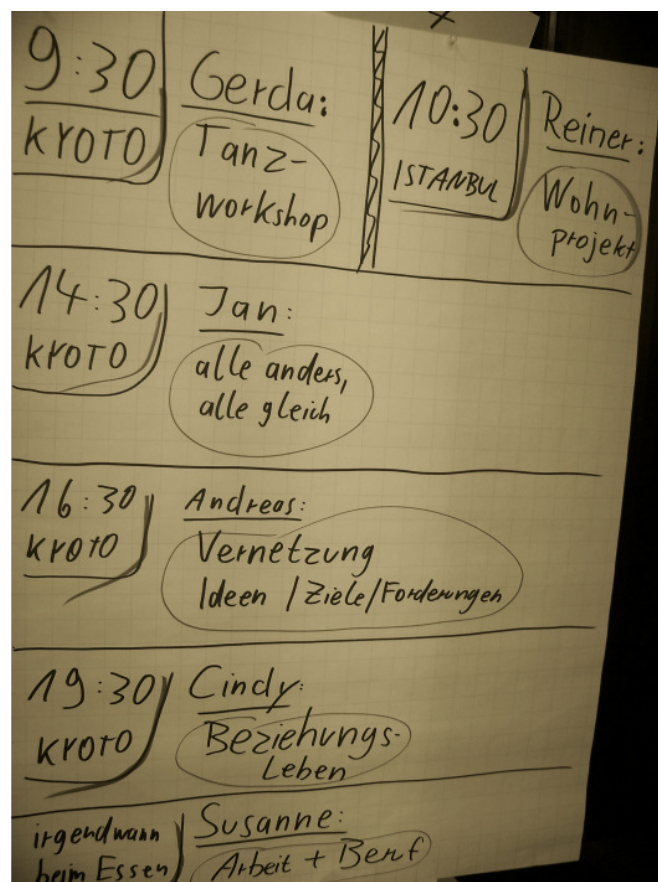 9:30
KYOTO
Gerda:
Tanz-
workshop
10:30
ISTANBUL
Reiner:
Wohn-
projekt
14:30
KYOTO
Jan:
alle anders,
alle gleich
16:30
KYOTO
Andreas:
Vernetzung
Ideen / Ziele / Forderungen
19:30
KYOTO
Cindy:
Beziehungs-
Leben
irgendwann
beim Essen
Susanne:
Arbeit + Beruf